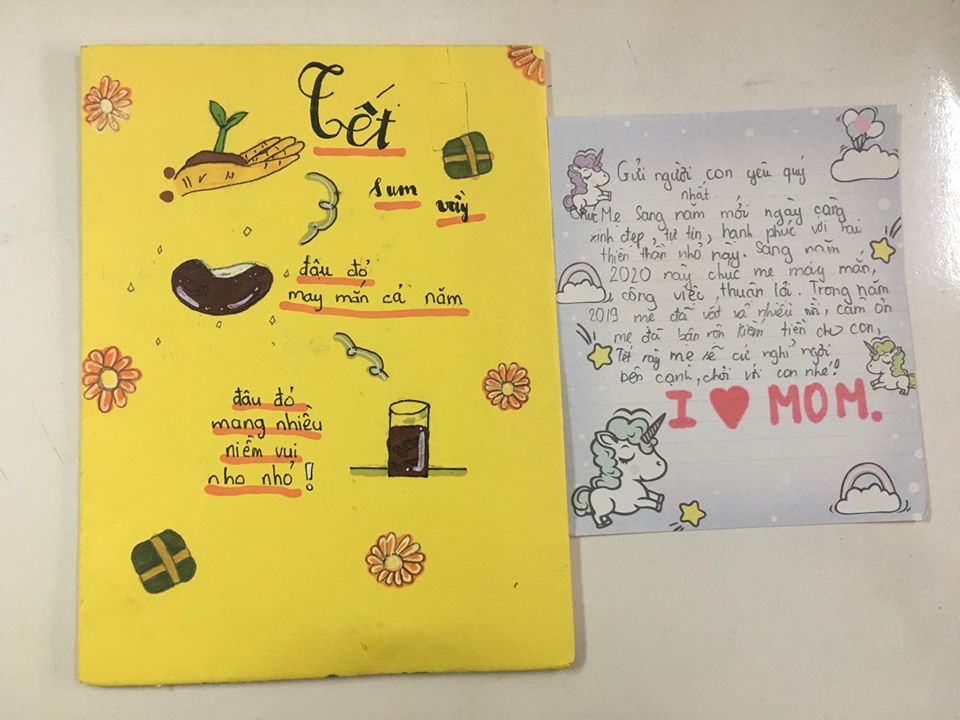 Tết
sum
vầy
đậu đỏ
may mắn cả năm
đậu đỏ
mang nhiều
niềm vui
nho nhỏ!
Gửi người con yêu quý
nhất.
Chúc Mẹ Sang năm mới ngày càng
xinh đẹp, tự tin, hạnh phúc với hai
thiên thần nhỏ này. Sang năm
2020 này chúc mẹ may mắn,
công việc thuận lợi. Trong năm
2019 mẹ đã vất vả nhiều rồi, cảm ơn
mẹ đã bận rộn kiếm tiền cho con,
Tết này mẹ sẽ cứ nghỉ ngơi
bên cạnh, chơi với con nhé!
I ♥ MOM.